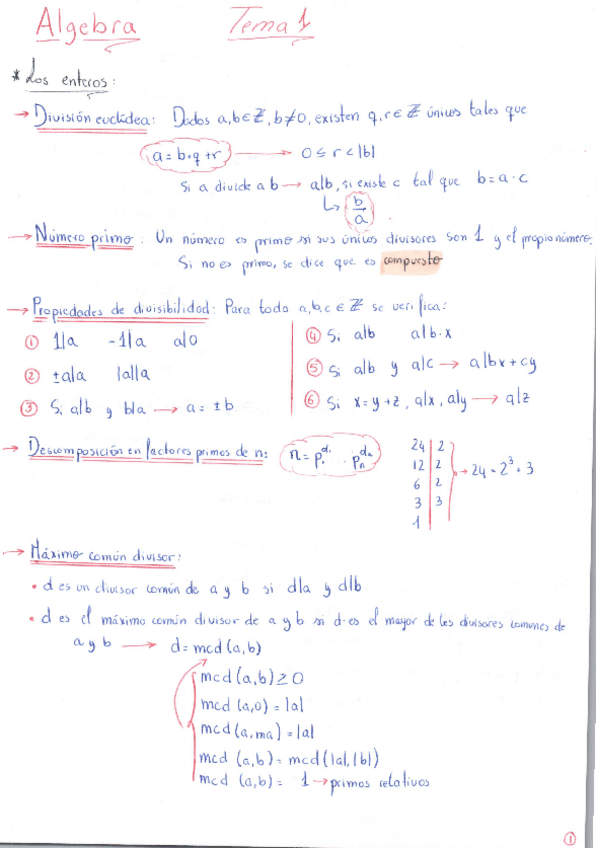 Algebra Tema 1
* Los enteros:
→ División euclídea: Dados a,b∈ℤ, b≠0, existen q,r∈ℤ únicos tales que
a = b·q+r → 0 ≤ r < |b|
Si a divide a b → a|b, si existe c tal que b = a·c
↳ b/a
→ Número primo: Un número es primo si sus únicos divisores son 1 y el propio número.
Si no es primo, se dice que es compuesto
→ Propiedades de divisibilidad: Para todo a,b,c ∈ ℤ se verifica:
① 1|a -1|a a|0
② ±a|a |a||a
③ Si a|b y b|a → a = ±b
④ Si a|b a|b·x
⑤ Si a|b y a|c → a|bx+cy
⑥ Si x=y+z, a|x, a|y → a|z
→ Descomposición en factores primos de n:
24 | 2
12 | 2
6 | 2
3 | 3
1 |
→ 24 = 2³·3
→ Máximo común divisor:
• d es un divisor común de a y b si d|a y d|b
• d es el máximo común divisor de a y b si d es el mayor de los divisores comunes de
a y b → d = mcd (a,b)
mcd (a,b) ≥ 0
mcd (a,0) = |a|
mcd (a,ma) = |a|
mcd (a,b) = mcd (|a|,|b|)
mcd (a,b) = 1 → primos relativos
①